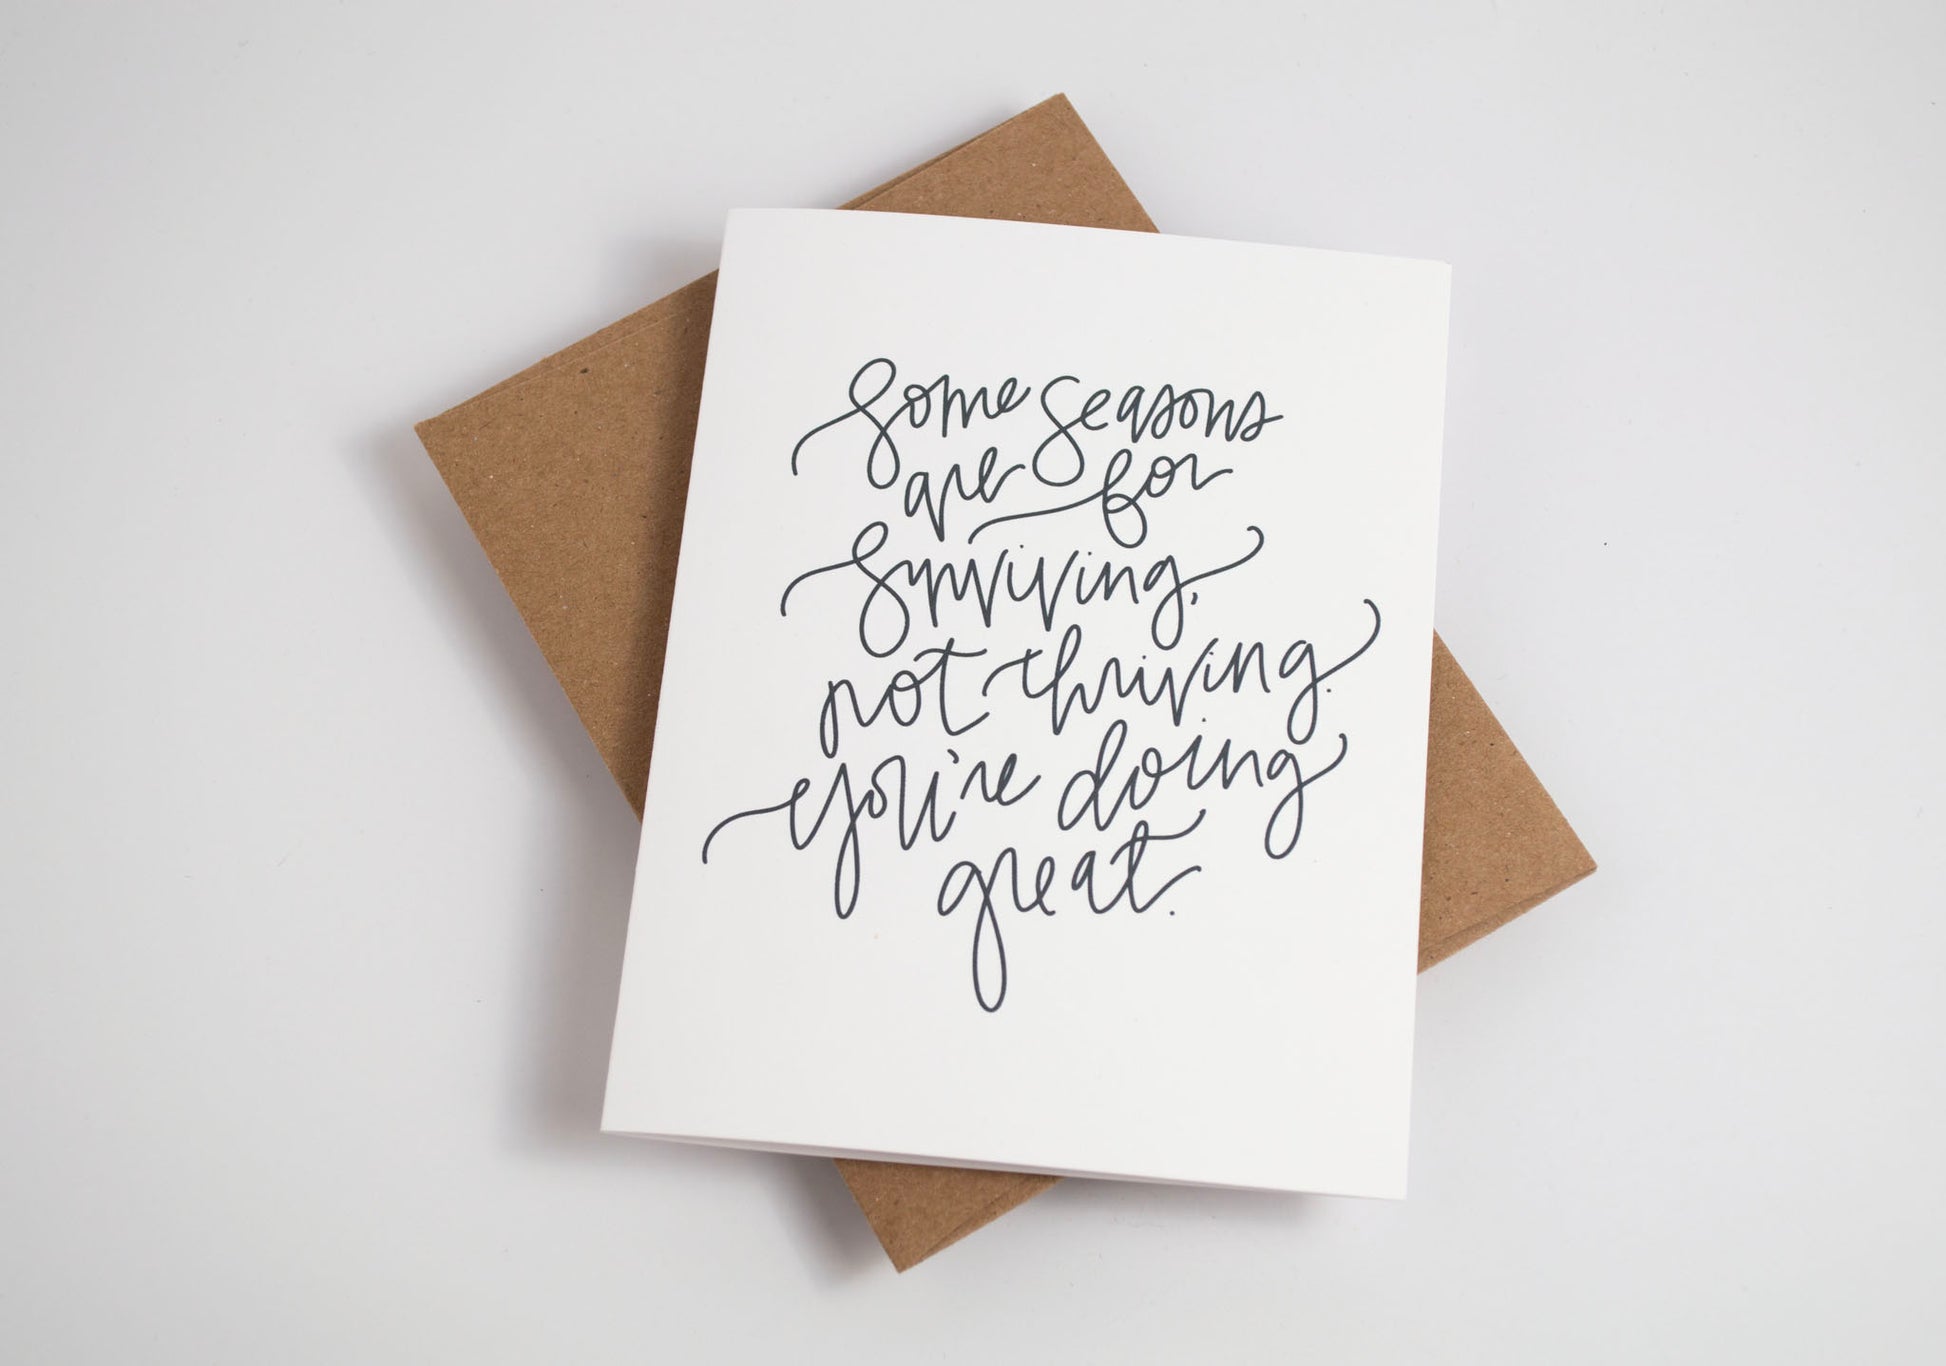 Some Seasons
are for
Surviving,
not thriving.
You're doing
great.